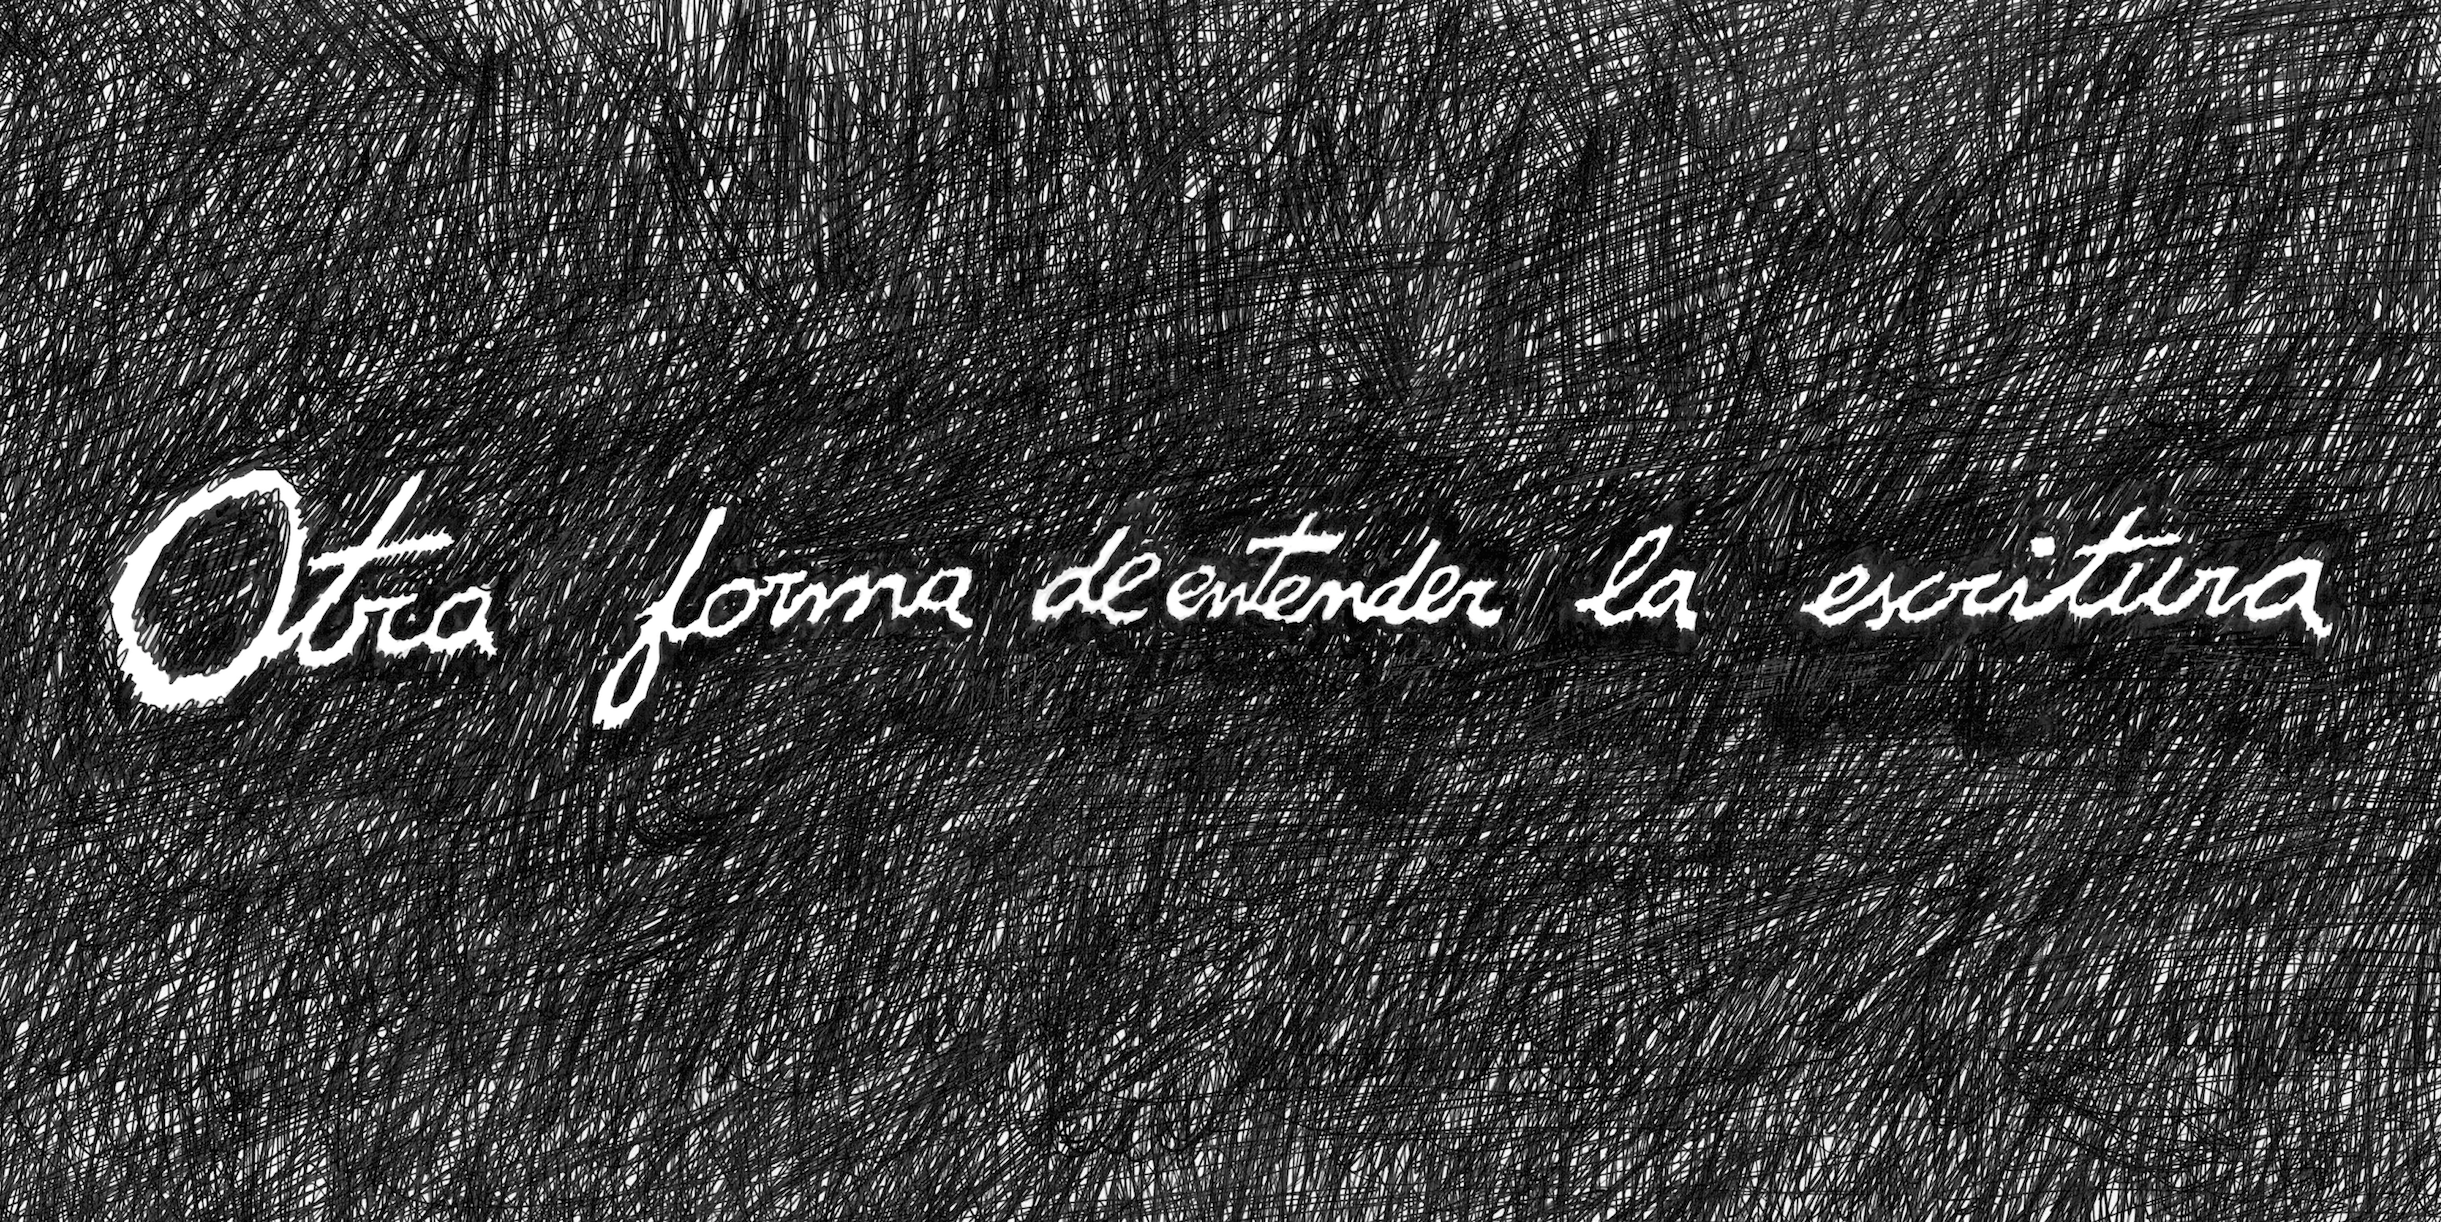 Otra forma de entender la escritura